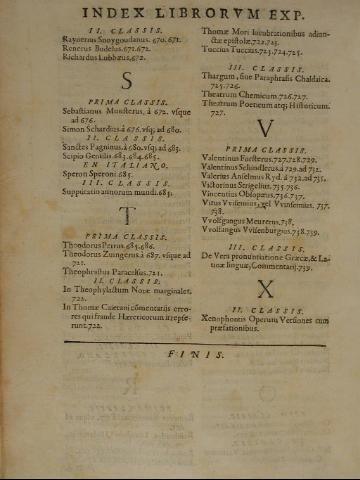 INDEX LIBRORVM EXP.
II. CLASSIS.
Raynerus Snoygoudanus. 670.671.
Renerus Budelus.671.672.
Richardus Lubbæus.672.
S
PRIMA CLASSIS.
Sebastianus Munsterus, á 672. vsque
ad 676.
Simon Schardius á 676.vsq; ad 680.
II. CLASSIS.
Sanctes Pagninus.á 680.vsq; ad 683.
Scipio Gentilis.683.684.685.
EN ITALIANO.
Speron Speroni.685.
III. CLASSIS.
Supputatio annorum mundi.685.
T
PRIMA CLASSIS.
Theodorus Petrus.685.686.
Theodorus Zuingerus.á 687. vsque ad
721.
Theophrastus Paracelsus.721.
II. CLASSIS.
In Theophylactum Notæ marginales.
722.
In Thomæ Caietani cōmentarijs erro-
res qui fraude Hæreticorum irrepse-
runt.722.
Thomæ Mori lucubrationibus adiun-
ctæ epistolæ.722.723.
Tuccius Tuccius.723.724.725.
III. CLASSIS.
Thargum, siue Paraphrasis Chaldaica.
725.726.
Theatrum Chemicum.726.727.
Theatrum Poeticum atq; Historicum.
727.
V
PRIMA CLASSIS.
Valentinus Forsterus.727.728.729.
Valentinus Schindlerus.á 729.ad 732.
Valerius Anselmus Ryd. á 732.ad 735.
Victorinus Strigelius.735.736.
Vincentius Obsopæus.736.737.
Vitus Vvinsemius, vel Vuinsemius. 737.
738.
Vvolfgangus Meurerus.738.
Vvolfangus Vvisenburgius.738.739.
III. CLASSIS.
De Vera pronuntiatione Græcæ, & La-
tinæ linguæ, Commentarij.739.
X
II. CLASSIS.
Xenophontis Operum Versiones cum
præfationibus.
FINIS.